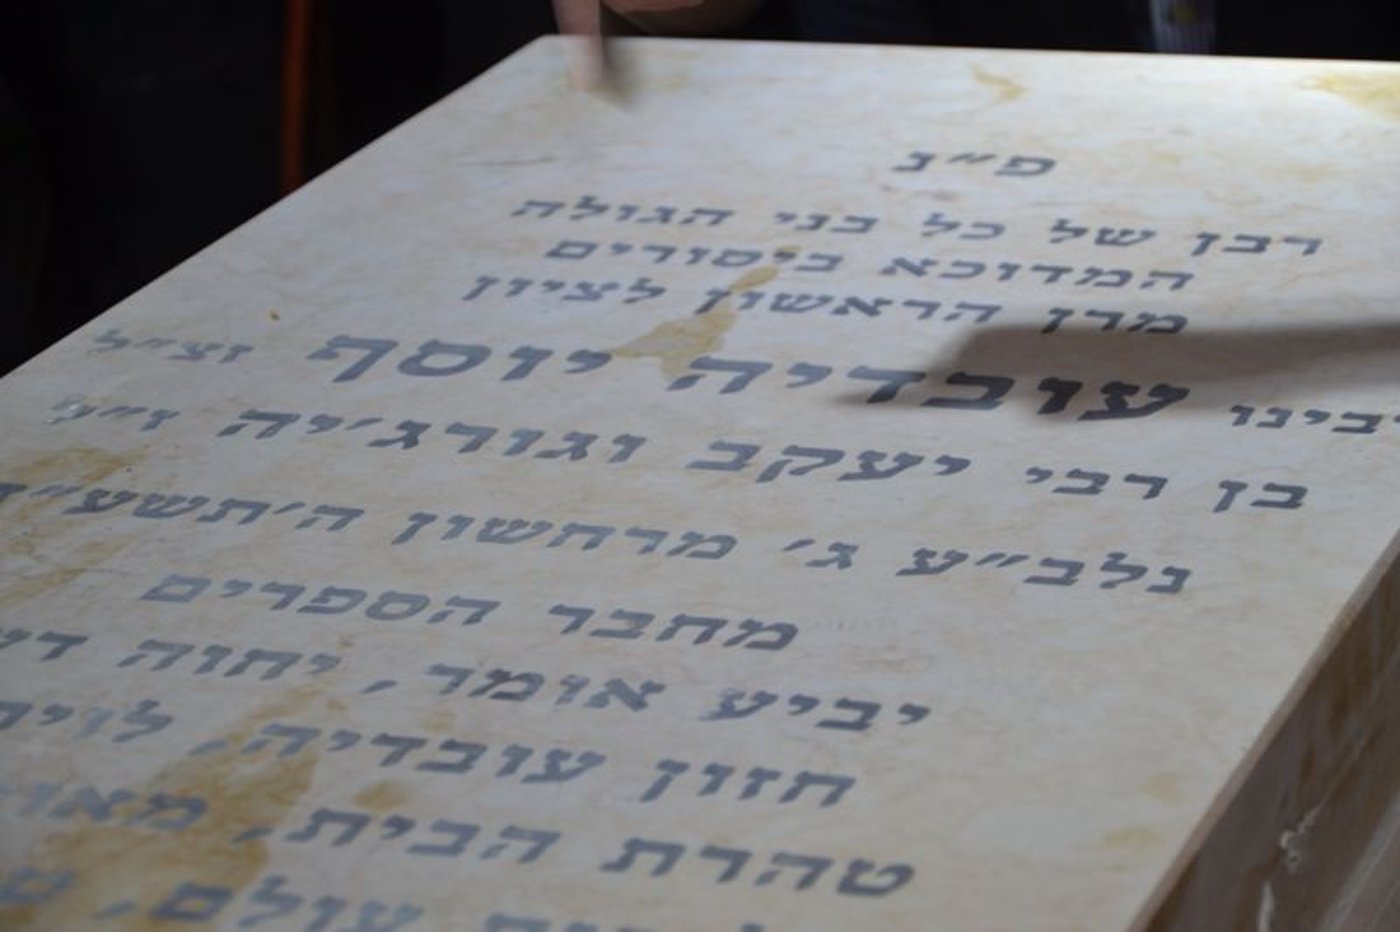 פ״נ
רבן של כל בני הגולה
המדוכא ביסורים
מרן הראשון לציון
עובדיה יוסף זצ״ל
בן רבי יעקב וגורג׳יה ז״ל
נלב״ע ג׳ מרחשון
מחבר הספרים
יביע אומר, יחוה
חזון עובדיה,
טהרת הבית,
עולם,